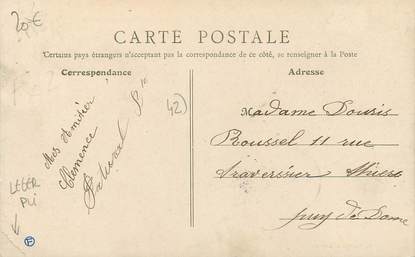 20€
CARTE POSTALE
Certains pays étrangers n'acceptant pas la correspondance de ce côté, se renseigner à la Poste
Correspondance
Adresse
Mes Amitiés
Clemence
42)
LEGER
PLI
Madame Douris
Roussel 11 rue
traversière Thiers
puy de Dome
F